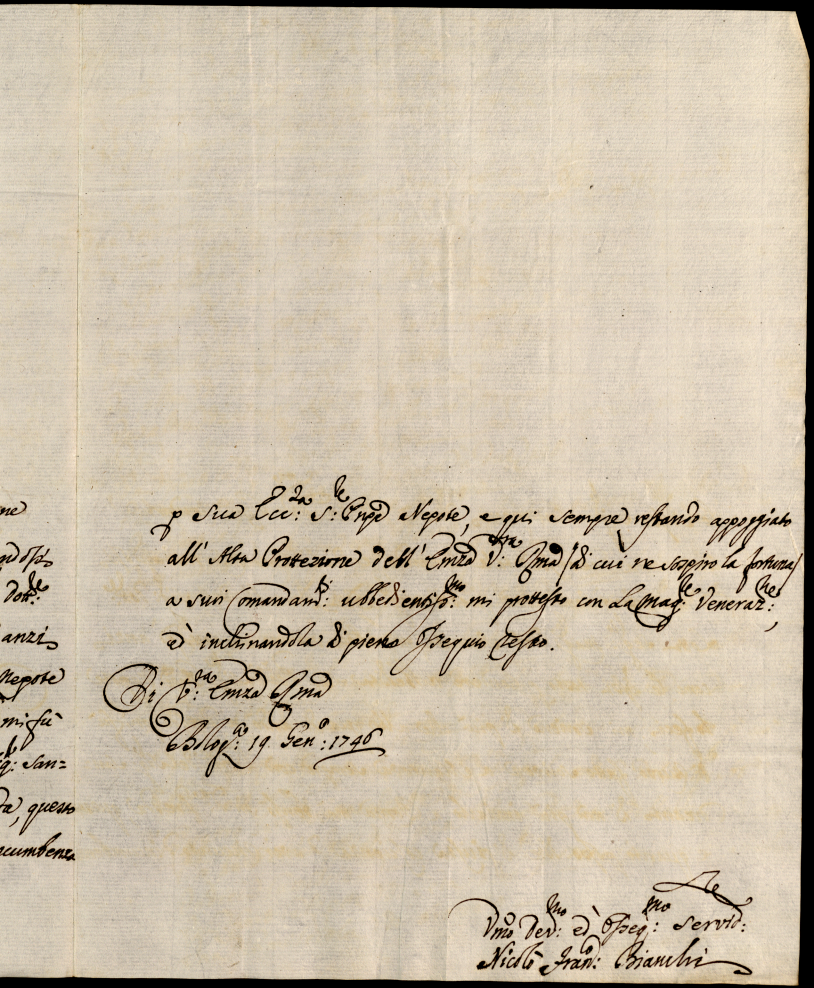 ne
Dott:re
anzi
Nepote
mi fù
g: San=
ta, questo
ncumbenza
p Sua Ecc:za S:re Prnpe Nepote, e qui sempre restando appoggiato
all' Alta Protezione dell' Emza V:ra Rma /di cui ne sospiro la fortuna/
a suoi Comandam:ti ubbedientiss:mo mi prottesto con La mag:re Veneraz:ne,
ed inclinandola di pieno Ossequio Resto.
Di V:ra Emza Rma
Bolog:a 19 Gen:o 1746
Vmo Dev:mo ed Osseq:mo Servid:re
Nicolò Fran:o Bianchi